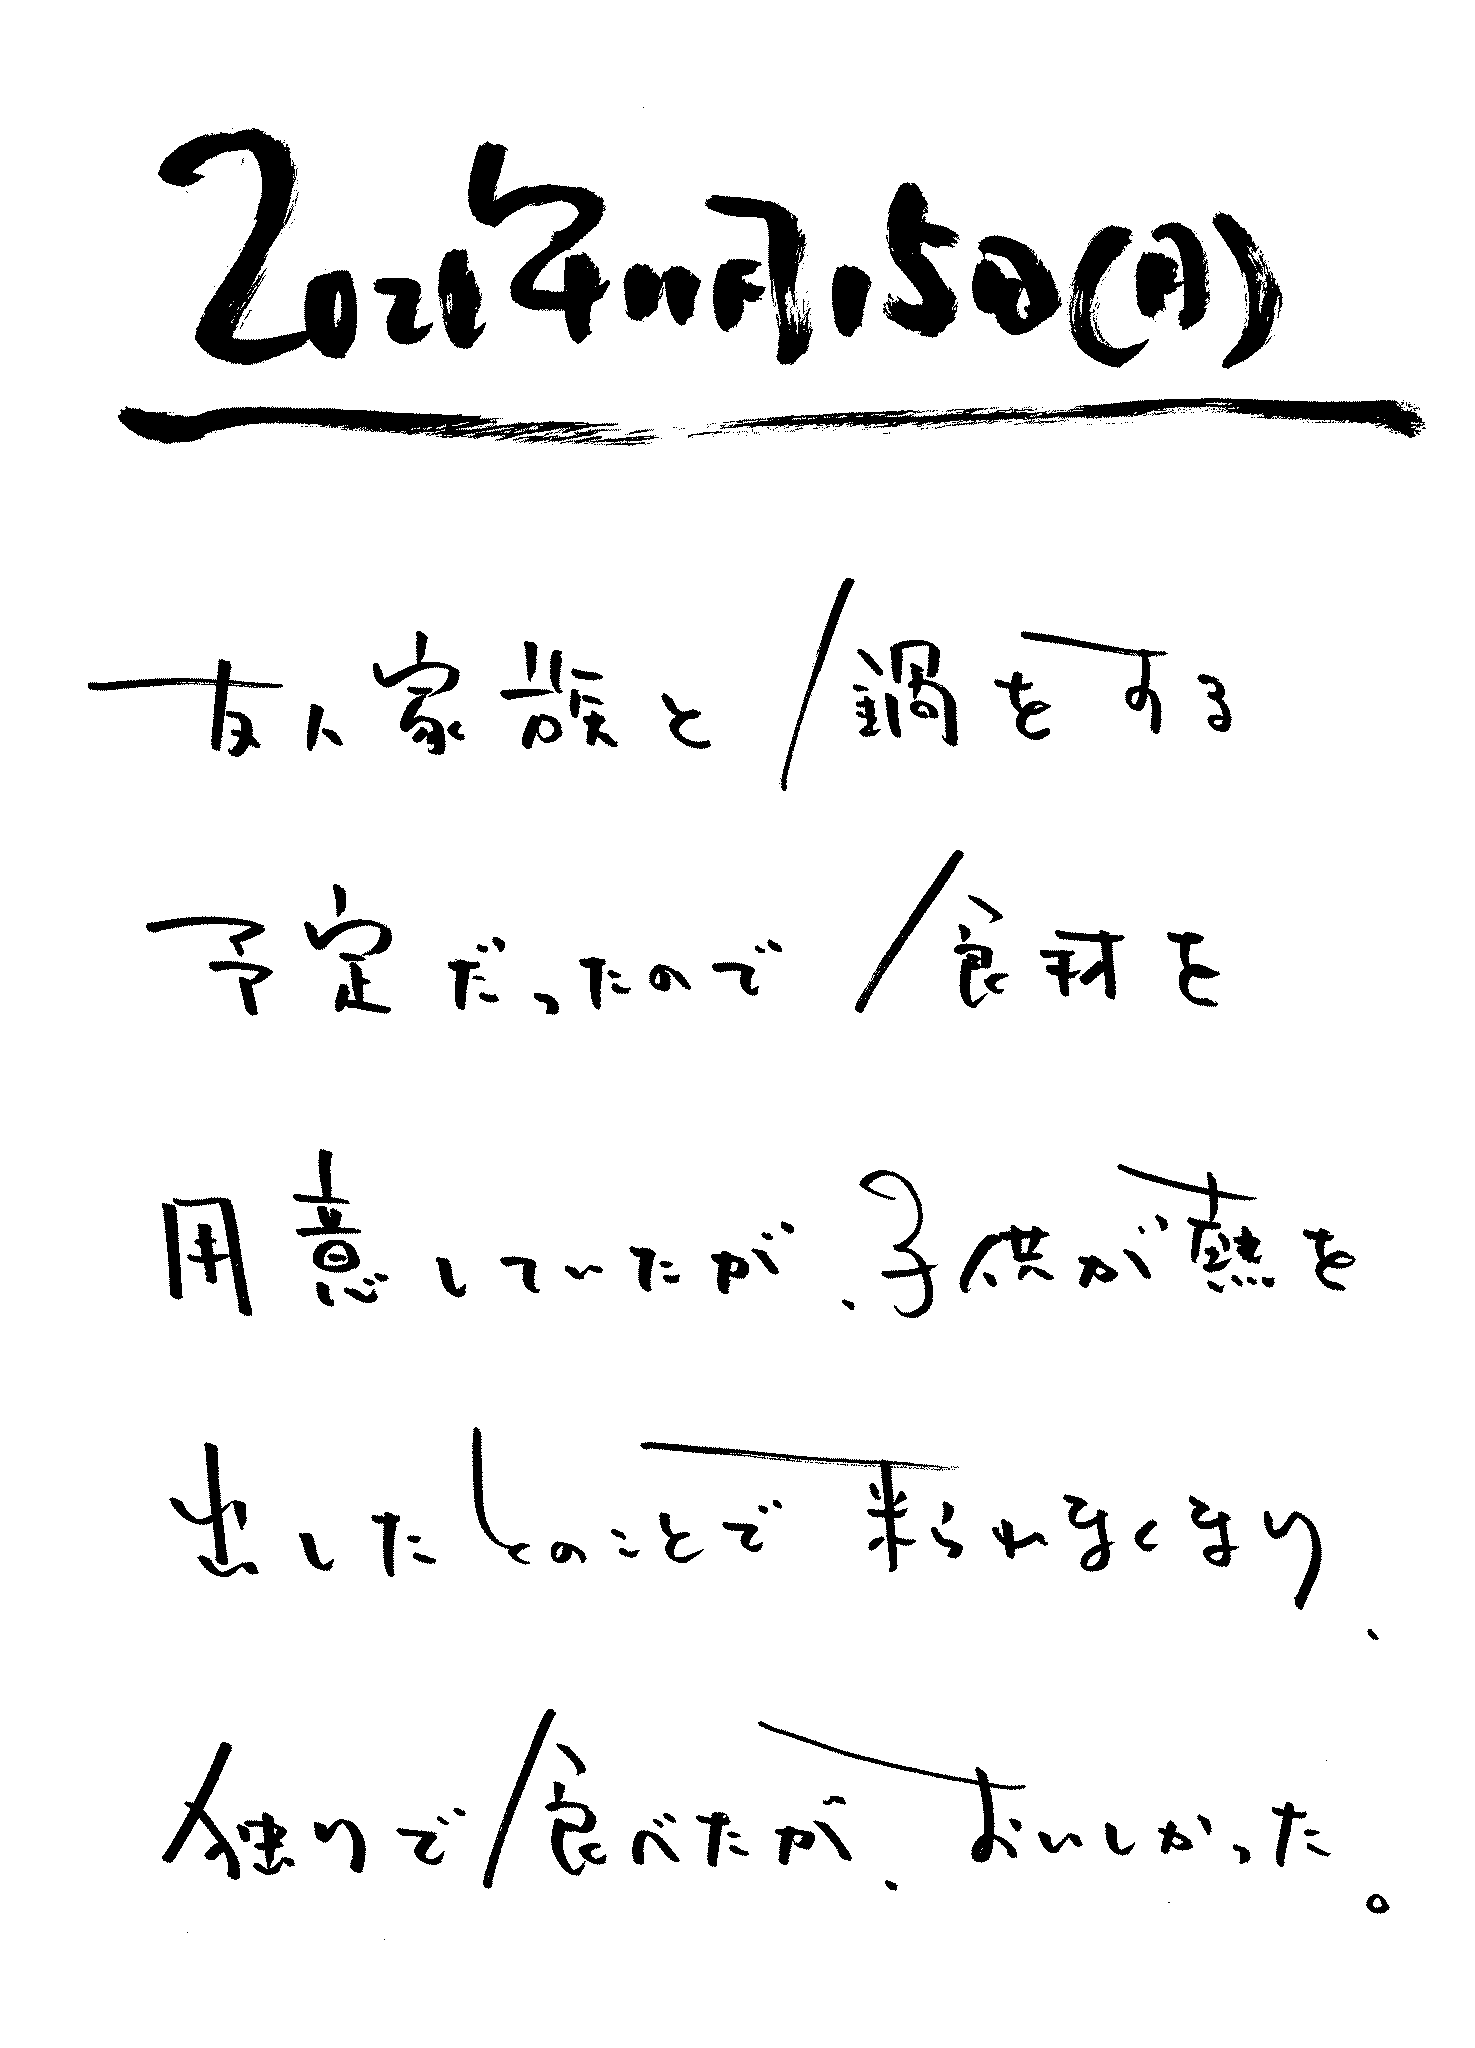 2021年11月15日(月)
友人家族と鍋をする
予定だったので食材を
用意していたが、子供が熱を
出したとのことで来られなくなり、
独りで食べたが、おいしかった。